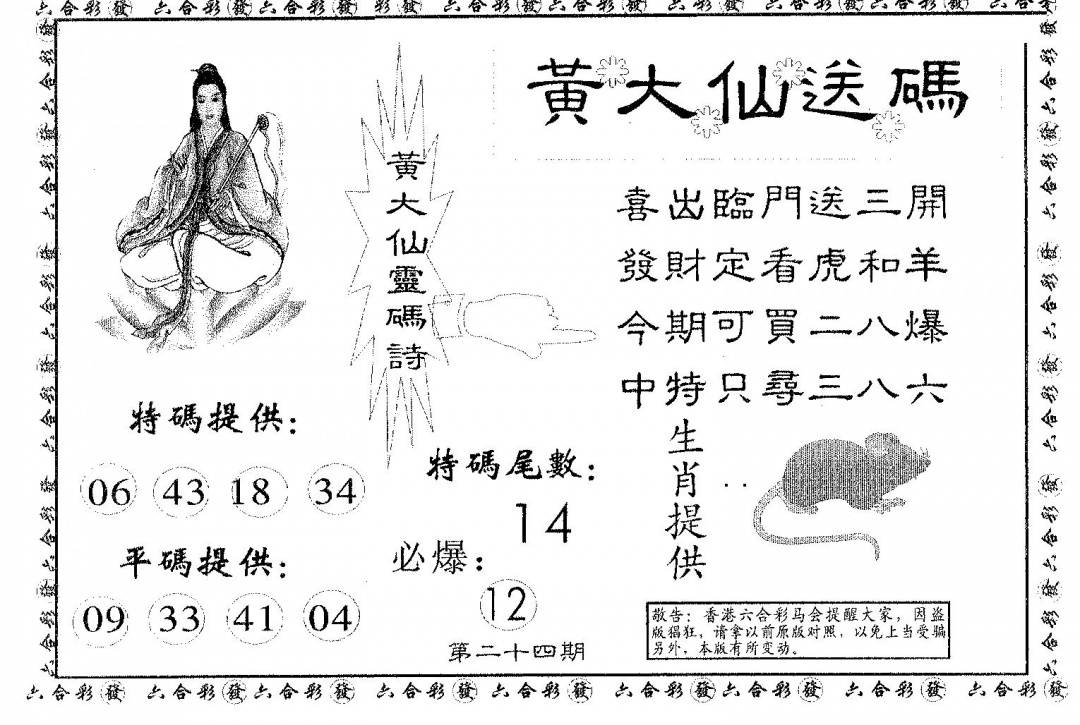 六合彩發 六合彩發六合彩發 六合彩發六合彩發 六合彩發六合彩發 六合彩發 六合彩
黃大仙送碼
黃大仙靈碼詩
喜出臨門送三開
發財定看虎和羊
今期可買二八爆
中特只尋三八六
特碼提供:
06 43 18 34
平碼提供:
09 33 41 04
特碼尾數:
14
必爆:
12
第二十四期
生肖提供
敬告:香港六合彩马会提醒大家,因盗
版猖狂,请拿以前原版对照,以免上当受骗
另外,本版有所变动。
六合彩發 六合彩發六合彩發 六合彩發六合彩發 六合彩發六合彩發 六合彩發 六合彩發